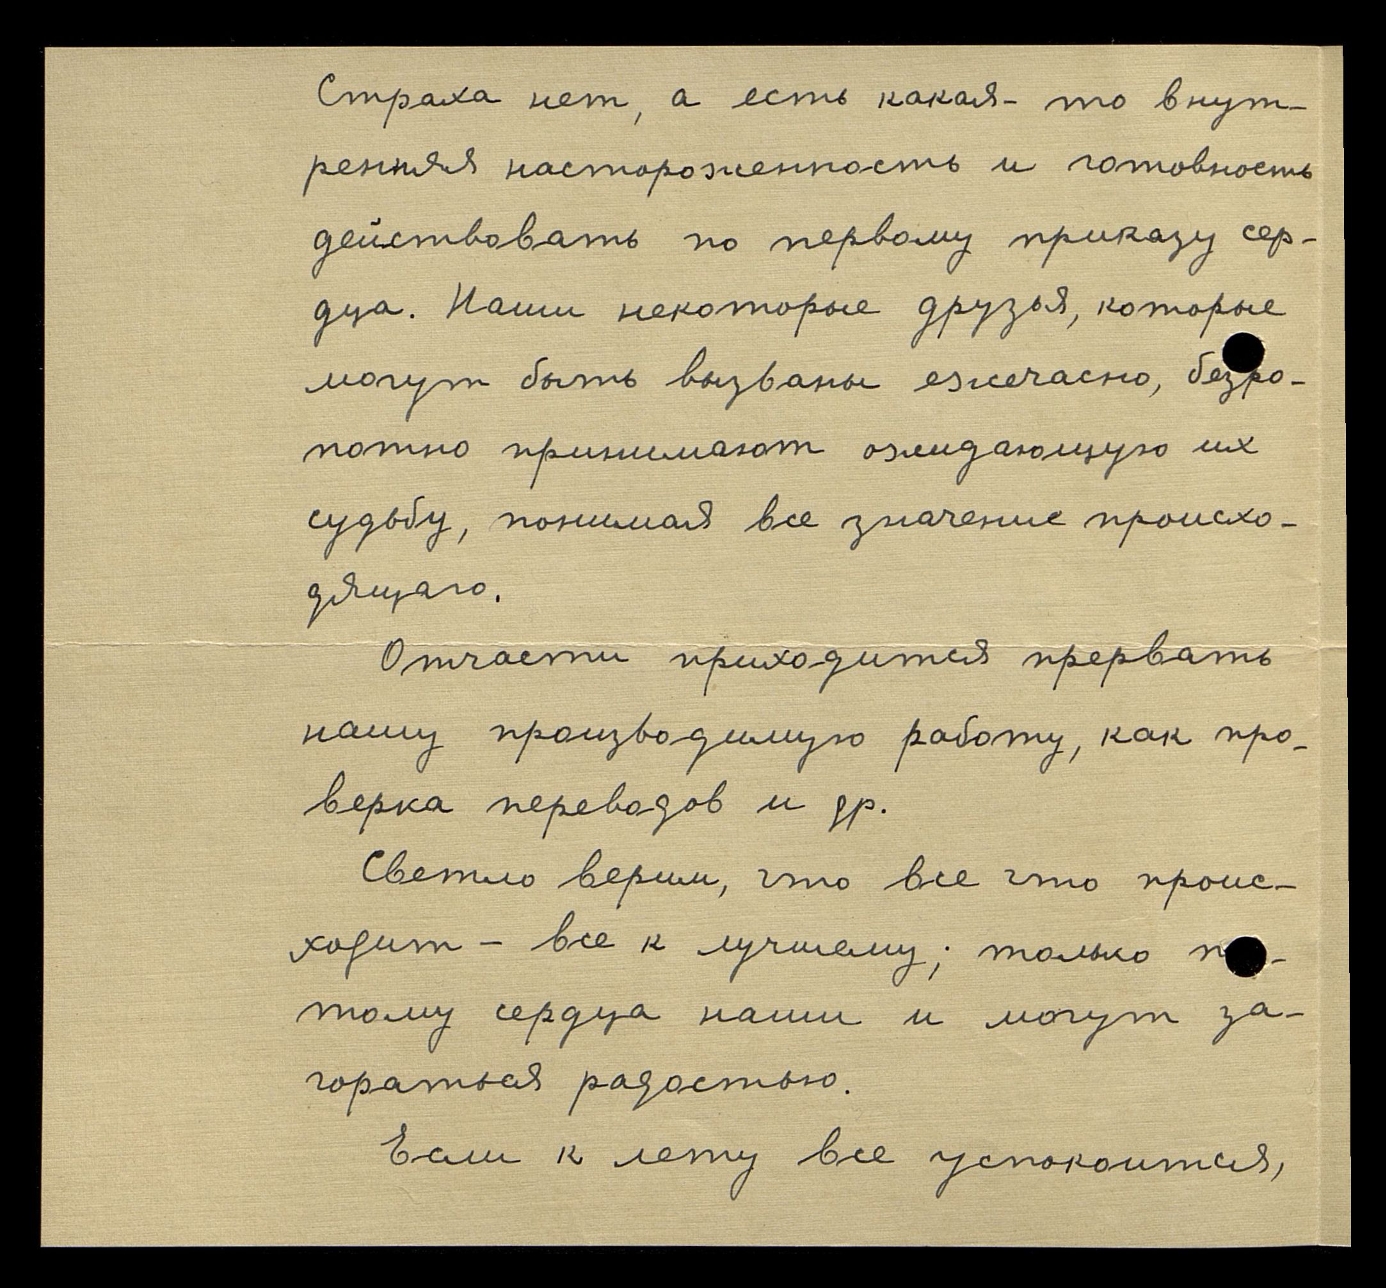 Страха нет, а есть какая-то внут-
ренняя настороженность и готовность
действовать по первому приказу сер-
дца. Наши некоторые друзья, которые
могут быть вызваны ежечасно, безро-
потно принимают ожидающую их
судьбу, понимая все значение происхо-
дящаго.
Отчасти приходится прервать
нашу производимую работу, как про-
верка переводов и др.
Светло верим, что все что проис-
ходит - все к лучшему; только по-
тому сердца наши и могут за-
гораться радостью.
Если к лету все успокоится,